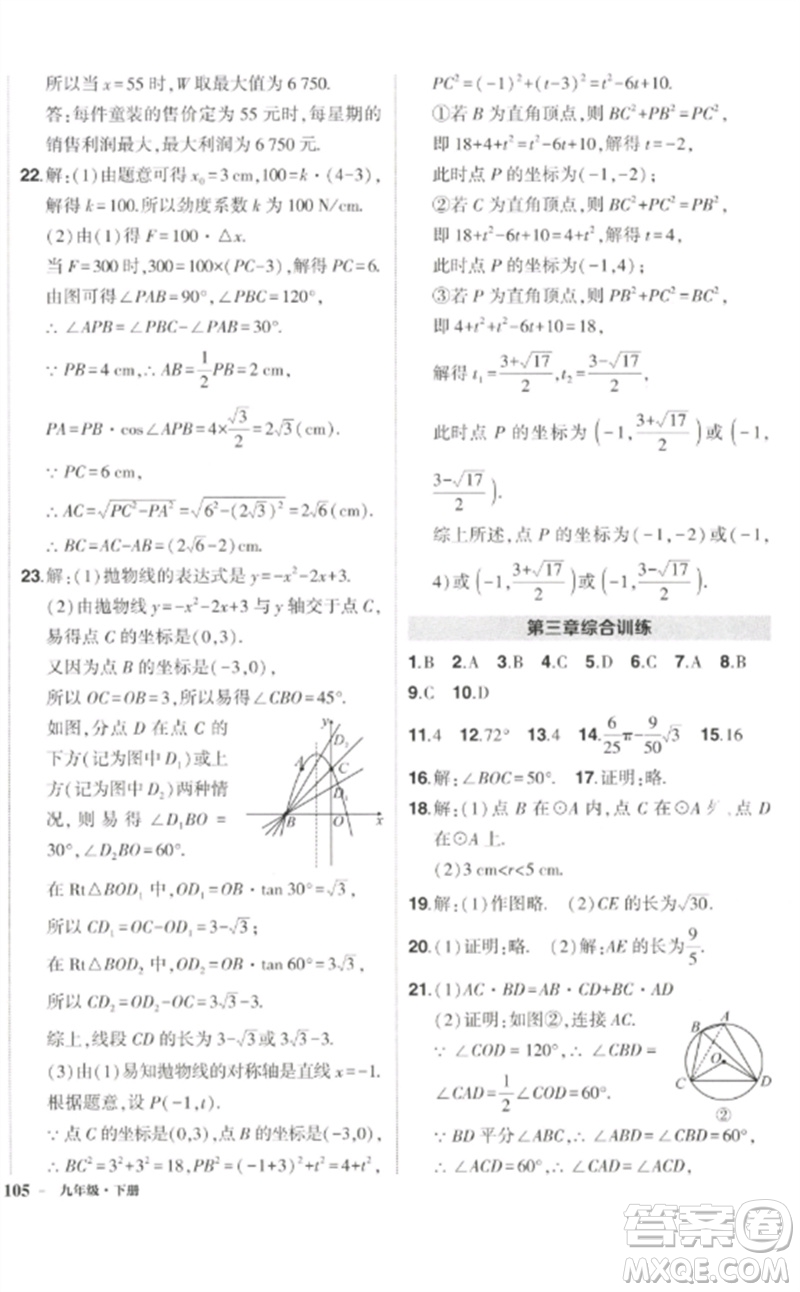 所以当 x=55 时,W 取最大值为 6 750.
答:每件童装的售价定为 55 元时,每星期的
销售利润最大,最大利润为 6 750 元.
22.解:(1)由题意可得 x₀=3 cm,100=k·(4-3),
解得 k=100.所以劲度系数 k 为 100 N/cm.
(2)由(1)得 F=100·△x.
当 F=300 时,300=100×(PC-3),解得 PC=6.
由图可得∠PAB=90°,∠PBC=120°,
∴ ∠APB=∠PBC-∠PAB=30°.
∵ PB=4 cm,∴ AB=1/2PB=2(cm),
PA=PB·cos∠APB=4×√3/2=2√3(cm).
∵ PC=6 cm,
∴ AC=√(PC²-PA²)=√(6²-(2√3)²)=2√6(cm).
∴ BC=AC-AB=(2√6-2)cm.
23.解:(1)抛物线的表达式是 y=-x²-2x+3.
(2)由抛物线 y=-x²-2x+3 与 y 轴交于点 C,
易得点 C 的坐标是(0,3).
又因为点 B 的坐标是(-3,0),
所以 OC=OB=3,所以易得∠CBO=45°.
如图,分点 D 在点 C 的
下方(记为图中 D₁)或上
方(记为图中 D₂)两种情
况,则易得∠D₁BO=
30°,∠D₂BO=60°.
y
D₂
A
C
D₁
B
O
x
在 Rt△BOD₁ 中,OD₁=OB·tan 30°=√3,
所以 CD₁=OC-OD₁=3-√3;
在 Rt△BOD₂ 中,OD₂=OB·tan 60°=3√3,
所以 CD₂=OD₂-OC=3√3-3.
综上,线段 CD 的长为 3-√3或 3√3-3.
(3)由(1)易知抛物线的对称轴是直线 x=-1.
根据题意,设 P(-1,t).
∵ 点 C 的坐标为(0,3),点 B 的坐标为(-3,0),
∴ BC²=3²+3²=18,PB²=(-1+3)²+t²=4+t²,
105 - 九年级·下册
PC²=(-1)²+(t-3)²=t²-6t+10.
①若 B 为直角顶点,则 BC²+PB²=PC²,
即 18+4+t²=t²-6t+10,解得 t=-2,
此时点 P 的坐标为(-1,-2);
②若 C 为直角顶点,则 BC²+PC²=PB²,
即 18+t²-6t+10=4+t²,解得 t=4,
此时点 P 的坐标为(-1,4);
③若 P 为直角顶点,则 PB²+PC²=BC²,
即 4+t²+t²-6t+10=18,
解得 t₁=(3+√17)/2,t₂=(3-√17)/2.
此时点 P 的坐标为(-1,(3+√17)/2)或(-1,
(3-√17)/2).
综上所述,点 P 的坐标为(-1,-2)或(-1,
4)或(-1,(3+√17)/2)或(-1,(3-√17)/2).
第三章综合训练
1.B 2.A 3.B 4.C 5.D 6.C 7.A 8.B
9.C 10.D
11.4 12.72° 13.4 14.6/25π-9/50√3 15.16
16.解:∠BOC=50°. 17.证明:略.
18.解:(1)点 B 在⊙A 内,点 C 在⊙A 点 D
在⊙A 上.
(2)3 cm<r<5 cm.
19.解:(1)作图略. (2)CE 的长为√30.
20.(1)证明:略. (2)解:AE 的长为9/5.
21.(1)AC·BD=AB·CD+BC·AD
(2)证明:如图②,连接 AC.
∵ ∠COD=120°,∴ ∠CBD=
∠CAD=1/2∠COD=60°.
∵ BD 平分∠ABC,∴ ∠ABD=∠CBD=60°,
∴ ∠ACD=60°.
A
B
O
C
D
②
答案卷
MXQE.COM